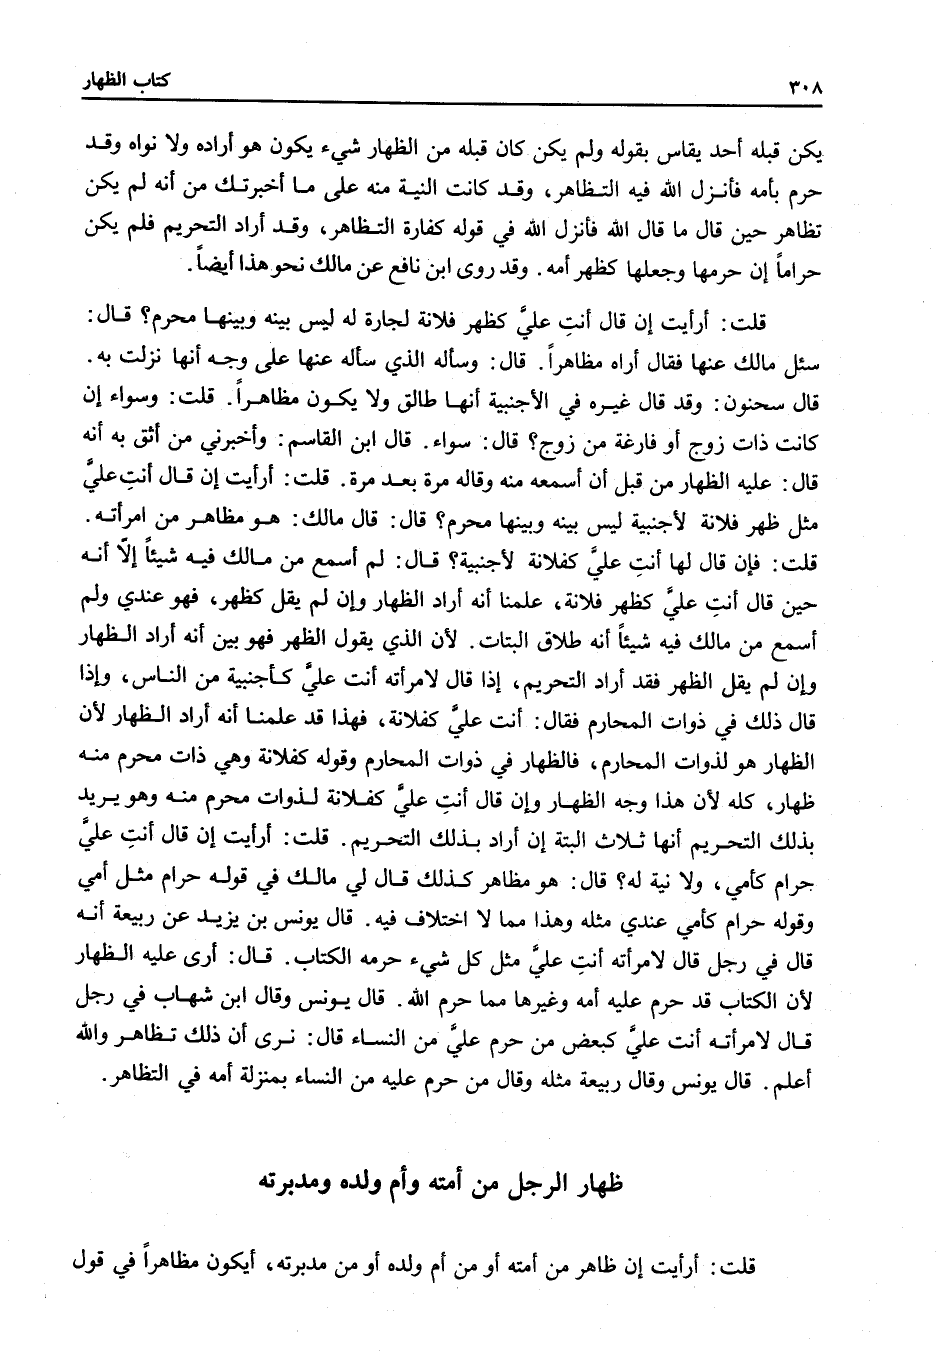 ٣٠٨ كتاب الظهار
يكن قبله أحد يقاس بقوله ولم يكن كان قبله من الظهار شيء يكون هو أراده ولا نواه وقد
حرم بأمه فأنزل الله فيه التظاهر، وقد كانت النية منه على ما أخبرتك من أنه لم يكن
تظاهر حين قال ما قال الله فأنزل الله في قوله كفارة التظاهر، وقد أراد التحريم فلم يكن
حراماً إن حرمها وجعلها كظهر أمه. وقد روى ابن نافع عن مالك نحو هذا أيضاً.
قلت: أرأيت إن قال أنتِ عليَّ كظهر فلانة لجارة له ليس بينه وبينها محرم؟ قال:
سئل مالك عنها فقال أراه مظاهراً. قال: وسأله الذي سأله عنها على وجه أنها نزلت به.
قال سحنون: وقد قال غيره في الأجنبية أنها طالق ولا يكون مظاهراً. قلت: وسواء إن
كانت ذات زوج أو فارغة من زوج؟ قال: سواء. قال ابن القاسم: وأخبرني من أثق به أنه
قال: عليه الظهار من قبل أن أسمعه منه وقاله مرة بعد مرة. قلت: أرأيت إن قال أنتِ عليَّ
مثل ظهر فلانة لأجنبية ليس بينه وبينها محرم؟ قال: قال مالك: هو مظاهر من امرأته.
قلت: فإن قال لها أنتِ عليَّ كفلانة لأجنبية؟ قال: لم أسمع من مالك فيه شيئاً إلّا أنه
حين قال أنتِ عليَّ كظهر فلانة، علمنا أنه أراد الظهار وإن لم يقل كظهر، فهو عندي ولم
أسمع من مالك فيه شيئاً أنه طلاق البتات. لأن الذي يقول الظهر فهو بين أنه أراد الظهار
وإن لم يقل الظهر فقد أراد التحريم، إذا قال لامرأته أنت عليَّ كأجنبية من الناس، وإذا
قال ذلك في ذوات المحارم فقال: أنت عليَّ كفلانة، فهذا قد علمنا أنه أراد الظهار لأن
الظهار هو لذوات المحارم، فالظهار في ذوات المحارم وقوله كفلانة وهي ذات محرم منه
ظهار، كله لأن هذا وجه الظهار وإن قال أنتِ عليَّ كفلانة لذوات محرم منه وهو يريد
بذلك التحريم أنها ثلاث البتة إن أراد بذلك التحريم. قلت: أرأيت إن قال أنتِ عليَّ
حرام كأمي، ولا نية له؟ قال: هو مظاهر كذلك قال لي مالك في قوله حرام مثل أمي
وقوله حرام كأمي عندي مثله وهذا مما لا اختلاف فيه. قال يونس بن يزيد عن ربيعة أنه
قال في رجل قال لامرأته أنتِ عليَّ مثل كل شيء حرمه الكتاب. قال: أرى عليه الظهار
لأن الكتاب قد حرم عليه أمه وغيرها مما حرم الله. قال يونس وقال ابن شهاب في رجل
قال لامرأته أنت عليَّ كبعض من حرم عليَّ من النساء قال: نرى أن ذلك تظاهر والله
أعلم. قال يونس وقال ربيعة مثله وقال من حرم عليه من النساء بمنزلة أمه في التظاهر.
ظهار الرجل من أمته وأم ولده ومدبرته
قلت: أرأيت إن ظاهر من أمته أو من أم ولده أو من مدبرته، أيكون مظاهراً في قول